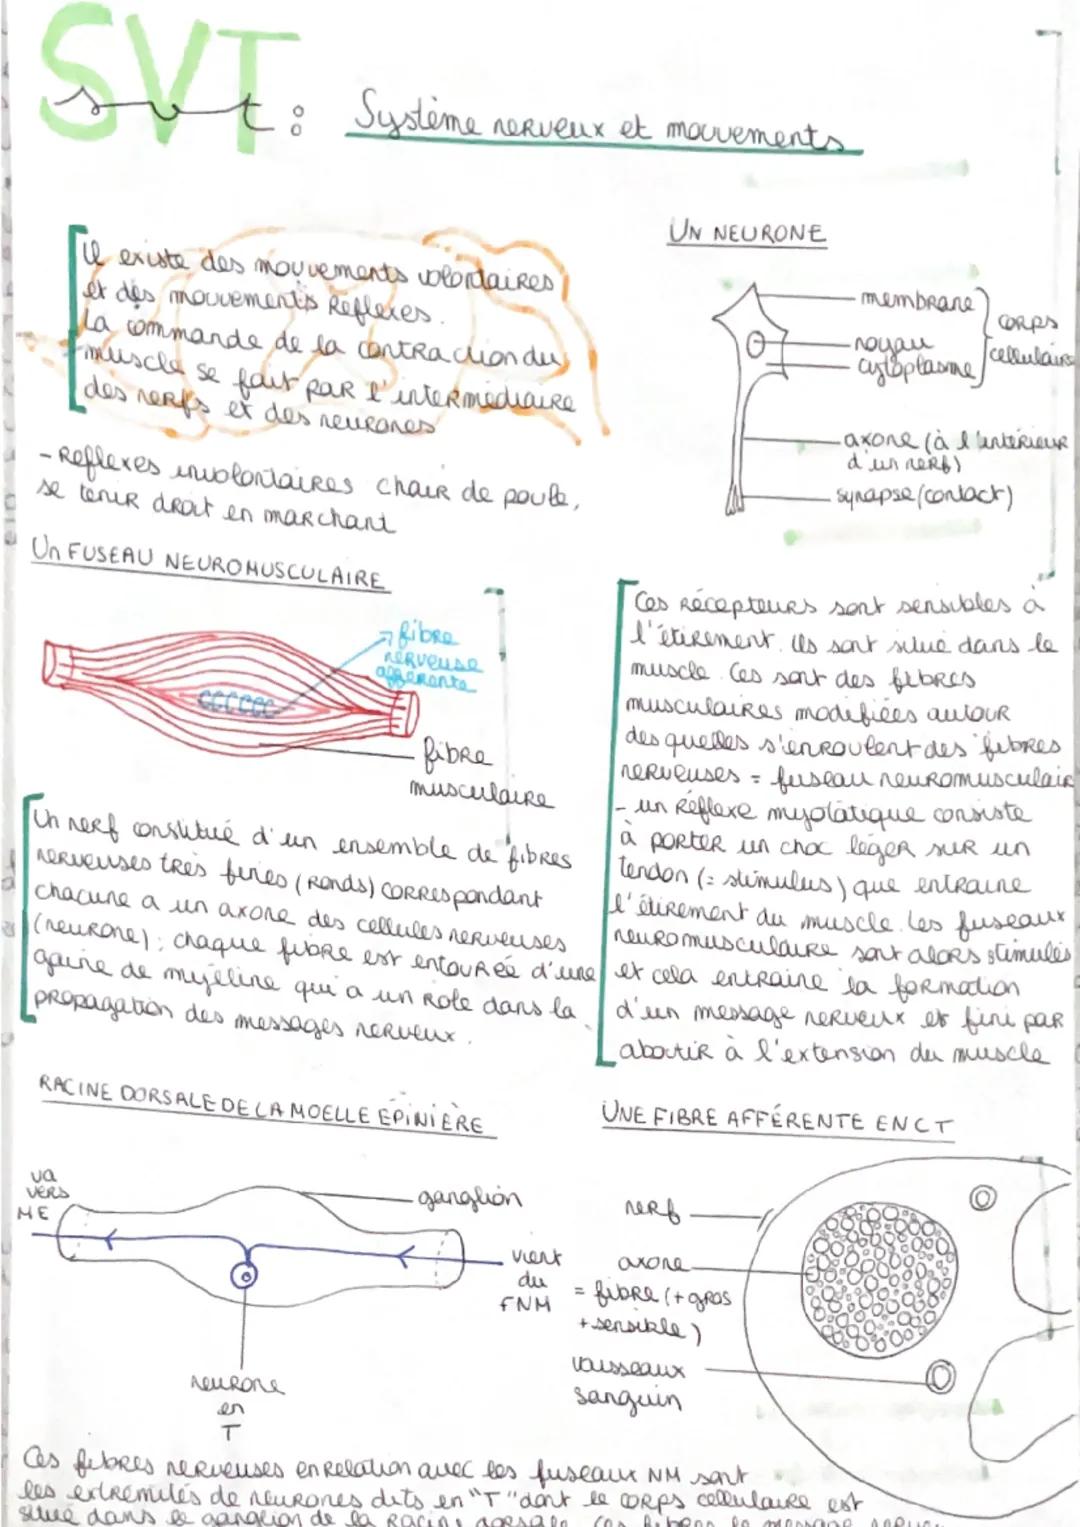 SVT
svt : Système nerveux et mouvements
Il existe des mouvements volontaires
et des mouvements Reflexes.
La commande de la contraction du
muscle se fait par l'intermédiaire
des nerfs et des neurones
- Reflexes involontaires chair de poule,
se tenir droit en marchant
UN NEURONE
membrane
noyau
cytoplasme
corps
cellulaire
axone (à l'intérieur
d'un nerf)
synapse (contact)
Un FUSEAU NEUROMUSCULAIRE
fibre
nerveuse
afferente
fibre
musculaire
Ces récepteurs sont sensibles à
l'étirement. Ils sont situé dans le
muscle. Ces sont des fibres
musculaires modifiées autour
des quelles s'enroulent des fibres
nerveuses = fuseau neuromusculair
- un réflexe myotatique consiste
à porter un choc léger sur un
tendon (= stimulus) que entraine
l'étirement du muscle. Les fuseaux
neuromusculaire sont alors stimulés
et cela entraine la formation
d'un message nerveux et fini par
aboutir à l'extension du muscle
Un nerf constitué d'un ensemble de fibres
nerveuses très fines (Ronds) correspondant
chacune a un axone des cellules nerveuses
(neurone) ; chaque fibre est entourée d'une
gaine de myéline qui a un role dans la
propagation des messages nerveux.
RACINE DORSALE DE LA MOELLE ÉPINIÈRE
va
vers
ME
ganglion
vient
du
FNM
neurone
en
T
UNE FIBRE AFFÉRENTE EN CT
nerf
axone
= fibre (+ gros
+ sensible)
vaisseaux
sanguin
Ces fibres nerveuses en relation avec les fuseaux NM sont
les extrémités de neurones dits en "T" dont le corps cellulaire est
situé dans le ganglion de la racine dorsale